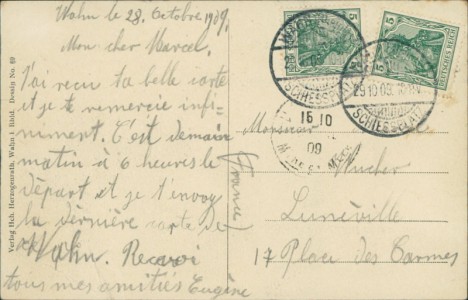 Wahn le 28. Octobre 1909.
Mon cher Marcel.
J'ai reçu ta belle carte
et je te remercie infi-
niment. C'est demain
matin à 6 heures le
départ et je t'envoy
la dernière carte de
Wahn. Reçoi
tous mes amitiés Eugène
Monsieur
Lunéville
17 Place des Carmes
(France)
Verlag Hch. Herzogenrath, Wahn i. Rhld. Dessin No. 69
5
5
DEUTSCHES REICH
29.10.09
SCHIESSPLATZ
SCHIESSPLATZ
16 10
09